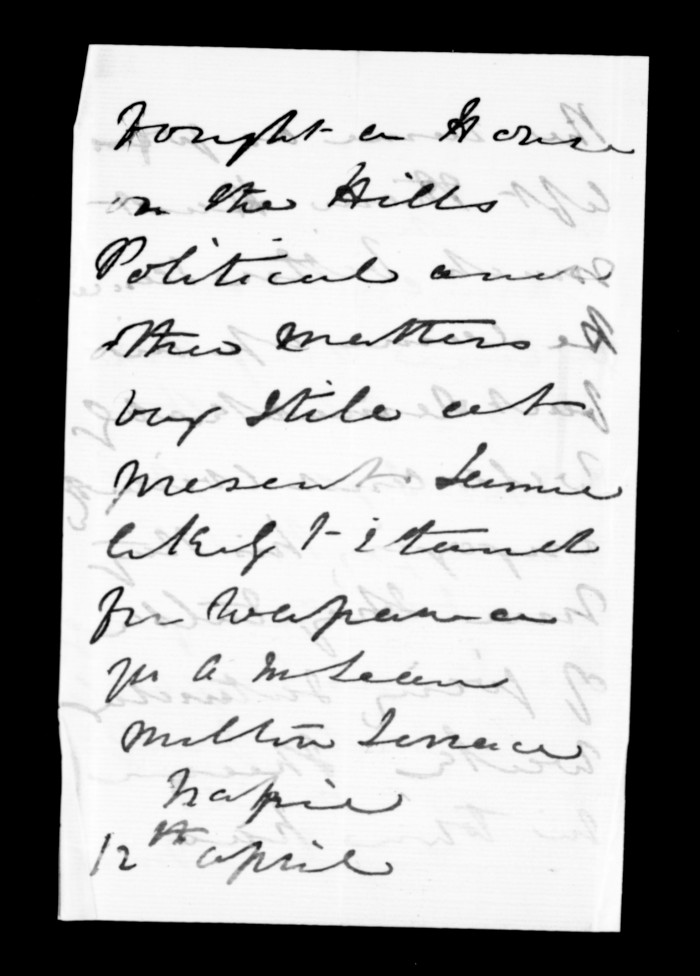 bought a House
on the Hills
Political and
other matters
very Stile at
present
likely to stand
for Waipawa
A McLean
Milton Terrace
Napier
12th April